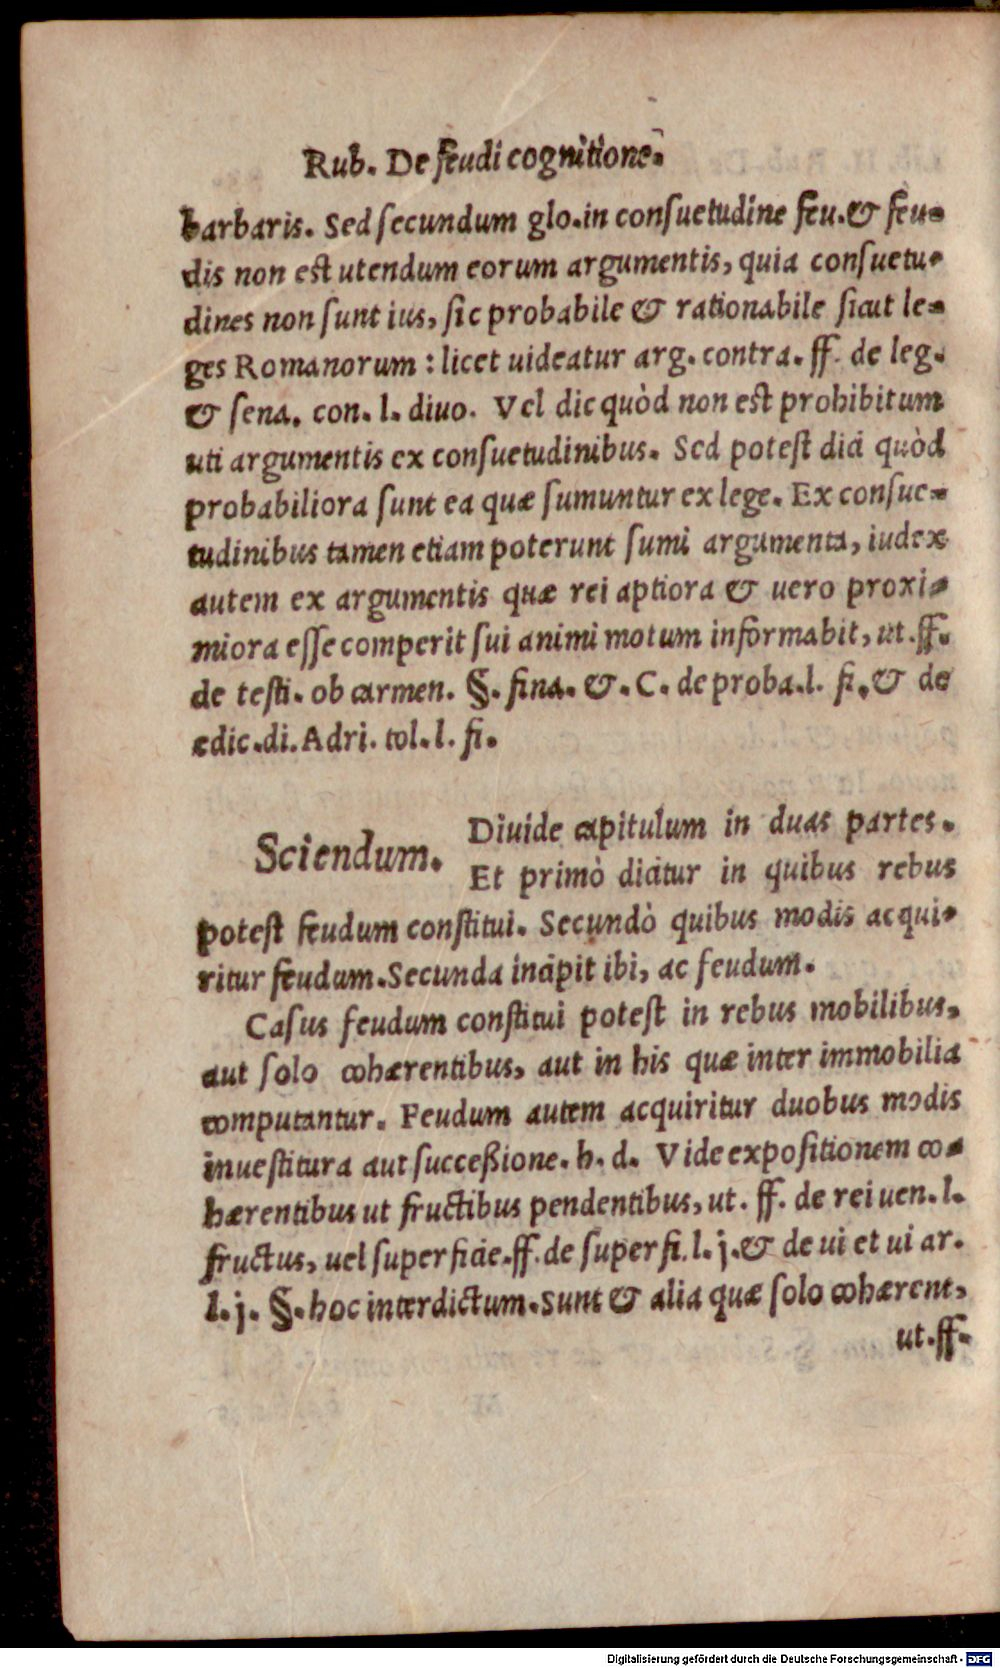 Rub. De feudi cognitione.
barbaris. Sed ſecundum glo. in conſuetudine feu. & feu-
dis non est utendum eorum argumentis, quia conſuetu-
dines non ſunt ius, ſic probabile & rationabile ſicut le-
ges Romanorum: licet uideatur arg. contra. ff. de leg.
& ſena. con. l. diuo. Vel dic quòd non est prohibitum
uti argumentis ex conſuetudinibus. Sed poteſt dici quòd
probabiliora ſunt ea quæ ſumuntur ex lege. Ex conſue-
tudinibus tamen etiam poterunt ſumi argumenta, iudex
autem ex argumentis quæ rei aptiora & uero proxi-
miora eſſe comperit ſui animi motum informabit, ut. ff.
de teſti. ob carmen. §. fina. &. C. de proba. l. fi. & de
edic. di. Adri. tol. l. fi.
Sciendum. Diuide capitulum in duas partes.
Et primò dicitur in quibus rebus
poteſt feudum conſtitui. Secundò quibus modis acqui-
ritur feudum. Secunda incipit ibi, ac feudum.
Caſus feudum conſtitui poteſt in rebus mobilibus,
aut ſolo cohærentibus, aut in his quæ inter immobilia
computantur. Feudum autem acquiritur duobus modis
inueſtitura aut ſucceßione. h. d. Vide expoſitionem co-
hærentibus ut fructibus pendentibus, ut. ff. de rei uen. l.
fructus, uel ſuperficie. ff. de ſuperfi. l. j. & de ui et ui ar.
l. j. §. hoc interdictum. Sunt & alia quæ ſolo cohærent,
ut. ff.
Digitalisierung gefördert durch die Deutsche Forschungsgemeinschaft - DFG